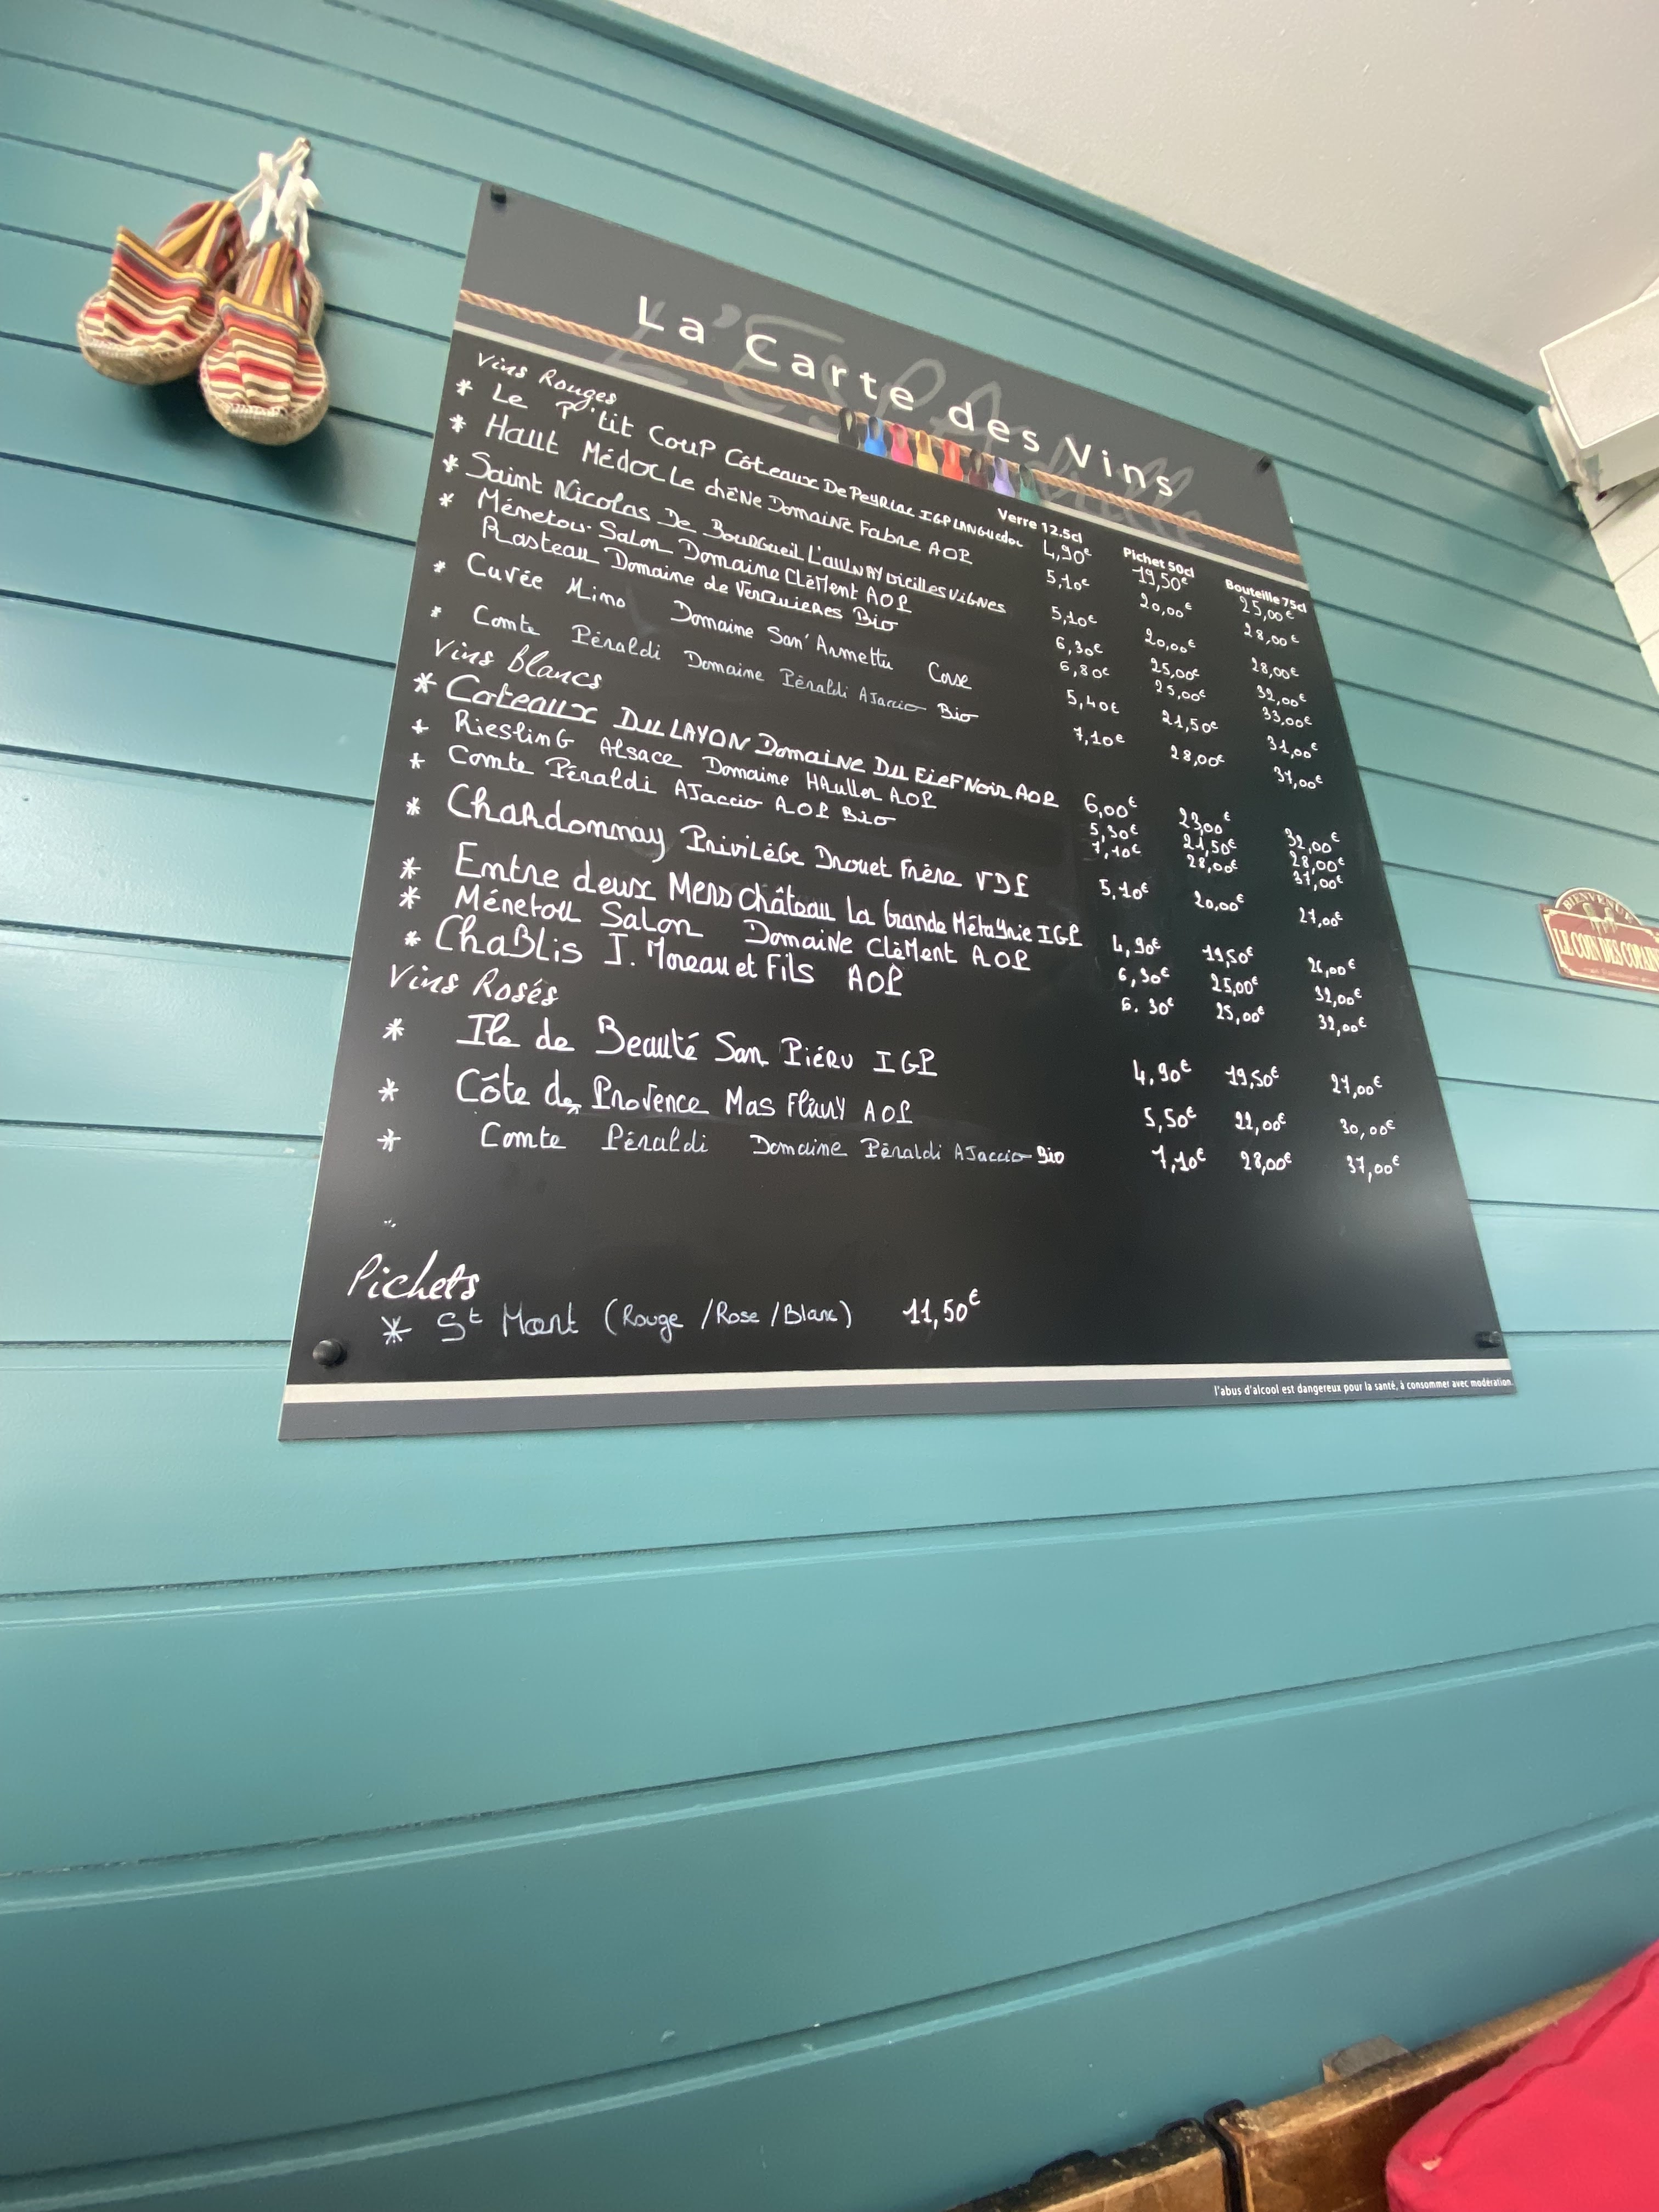 La Carte des Vins
Verre 12.5cl Pichet 50cl Bouteille 75cl
Vins Rouges
* Le P'tit Coup Côteaux De Peyriac IGP Languedoc 4,90€ 19,50€ 25,00€
* Haut Médoc Le chêne Domaine Fabre AOP 5,10€ 20,00€ 28,00€
* Saint Nicolas De Bourgueil L'aulnay vieilles Vignes 5,10€ 20,00€ 28,00€
* Ménetou-Salon Domaine Clèment AOP 6,30€ 25,00€ 32,00€
Rasteau Domaine de Verquieres Bio 6,80€ 25,00€ 33,00€
* Cuvée Mino Domaine San'Armettu Corse 5,40€ 21,50€ 31,00€
* Comte Péraldi Domaine Péraldi Ajaccio Bio 7,10€ 28,00€ 37,00€
Vins Blancs
* Coteaux Du LAYON Domaine Du Fief Noir AOP 6,00€ 23,00€ 32,00€
* Riesling Alsace Domaine Hauller AOP 5,30€ 21,50€ 28,00€
* Comte Péraldi Ajaccio AOP Bio 7,10€ 28,00€ 37,00€
* Chardonnay Privilège Drouet Frère VDF 5,10€ 20,00€ 27,00€
* Entre deux Mers Château La Grande Métayrie IGP 4,90€ 19,50€ 26,00€
* Ménetou Salon Domaine Clèment AOP 6,30€ 25,00€ 32,00€
* Chablis J. Moreau et Fils AOP 6.30€ 25,00€ 32,00€
Vins Rosés
* Ile de Beauté San Piéru IGP 4,90€ 19,50€ 27,00€
* Côte de Provence Mas Fleury AOP 5,50€ 22,00€ 30,00€
* Comte Péraldi Domaine Péraldi Ajaccio Bio 7,10€ 28,00€ 37,00€
Pichets
* St Mont (Rouge /Rose /Blanc) 11,50€
l'abus d'alcool est dangereux pour la santé, à consommer avec modération.
BIENVENUE
LE COIN DES COPAINS